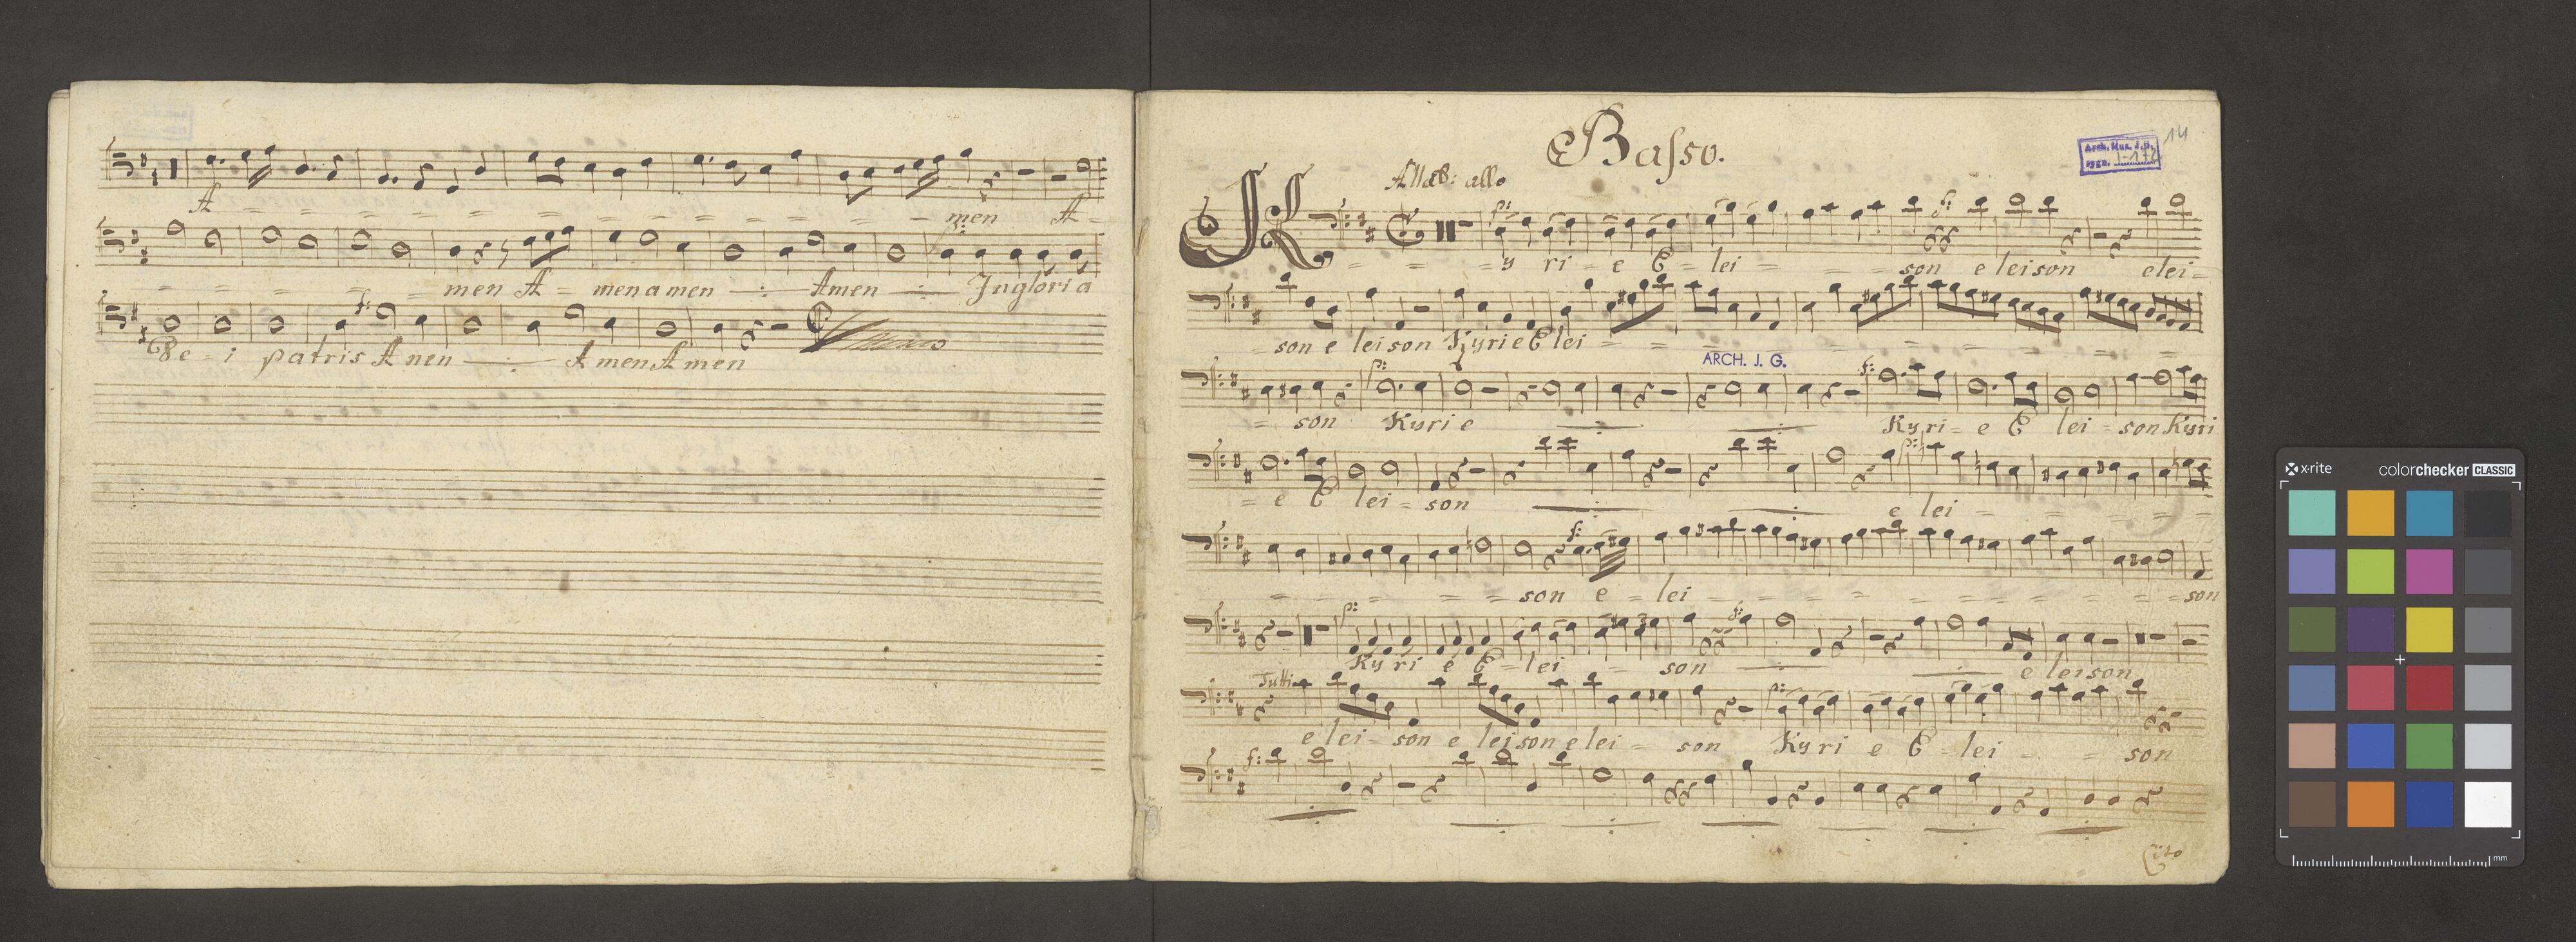 A = = = = = = = = = - men A -
= = = = men A = men amen Amen In gloria
De - i patris A nen Amen Amen
Basso.
14
Arch. Mus. J. G.
I-172
Allab: allo
p: f:
K = = = y ri = e E = lei = = = = son e leison elei =
= son e leison Kyrie E lei = = = = = = = =
ARCH. J. G.
p: f:
= son Kyri e Kyri = e E lei = son Kyri
p:
= e E lei = son e lei = = = = =
f:
= = = = = son e = lei = = = = = = = = = son
p: f:
Kyri e E = lei = son e leison
Tutti p:
e lei = son e leison elei = son Kyri e E = lei - = son
f:
Cito
x-rite colorchecker CLASSIC
mm